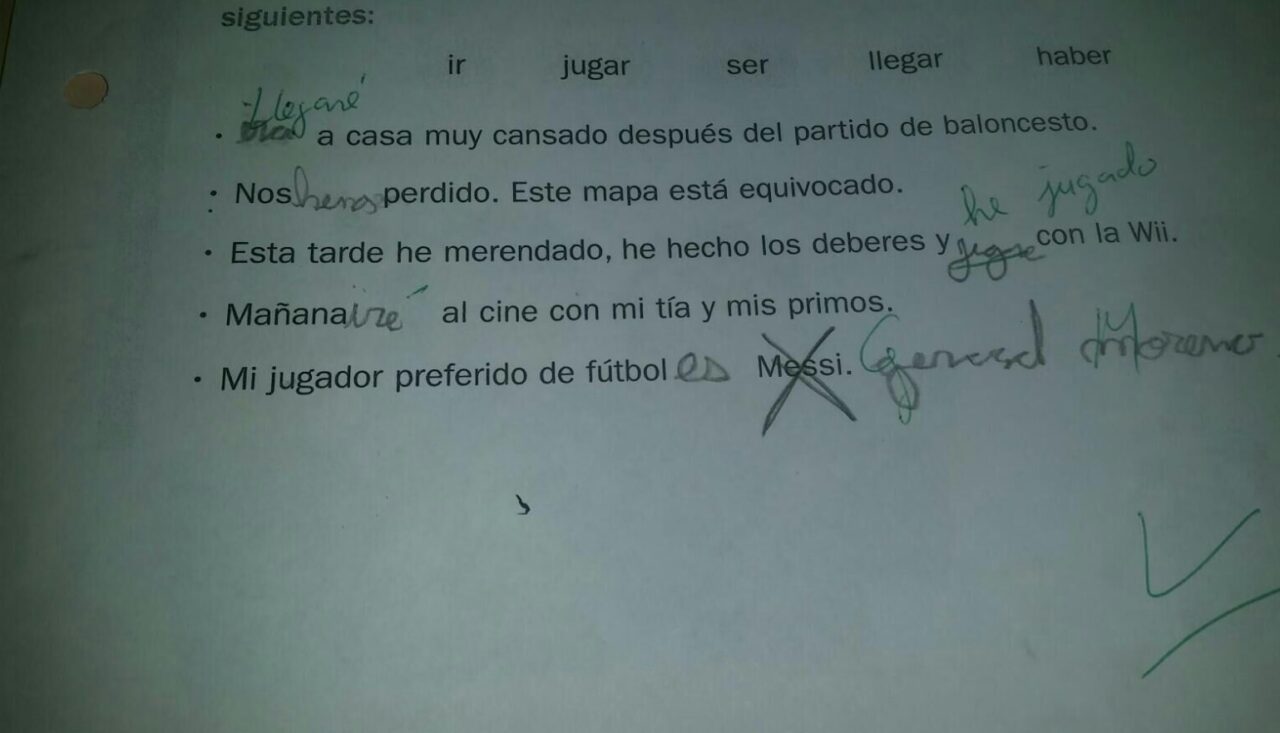 siguientes:
ir jugar ser llegar haber
Llegaré
· a casa muy cansado después del partido de baloncesto.
· Nos hemos perdido. Este mapa está equivocado.
he jugado
· Esta tarde he merendado, he hecho los deberes y jugé con la Wii.
· Mañana iré al cine con mi tía y mis primos.
· Mi jugador preferido de fútbol es Messi. Gerard Moreno